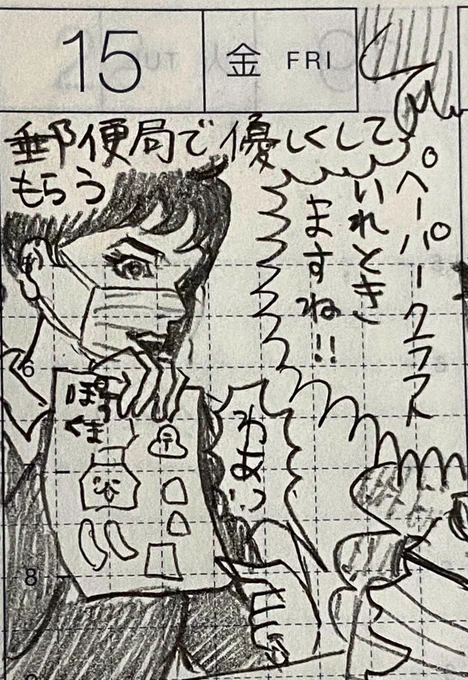 15
金 FRI
郵便局で優しくして
もらう
ペーパークラフト
いれとき
ますね!!
ぽすくま
わあっ
6
8